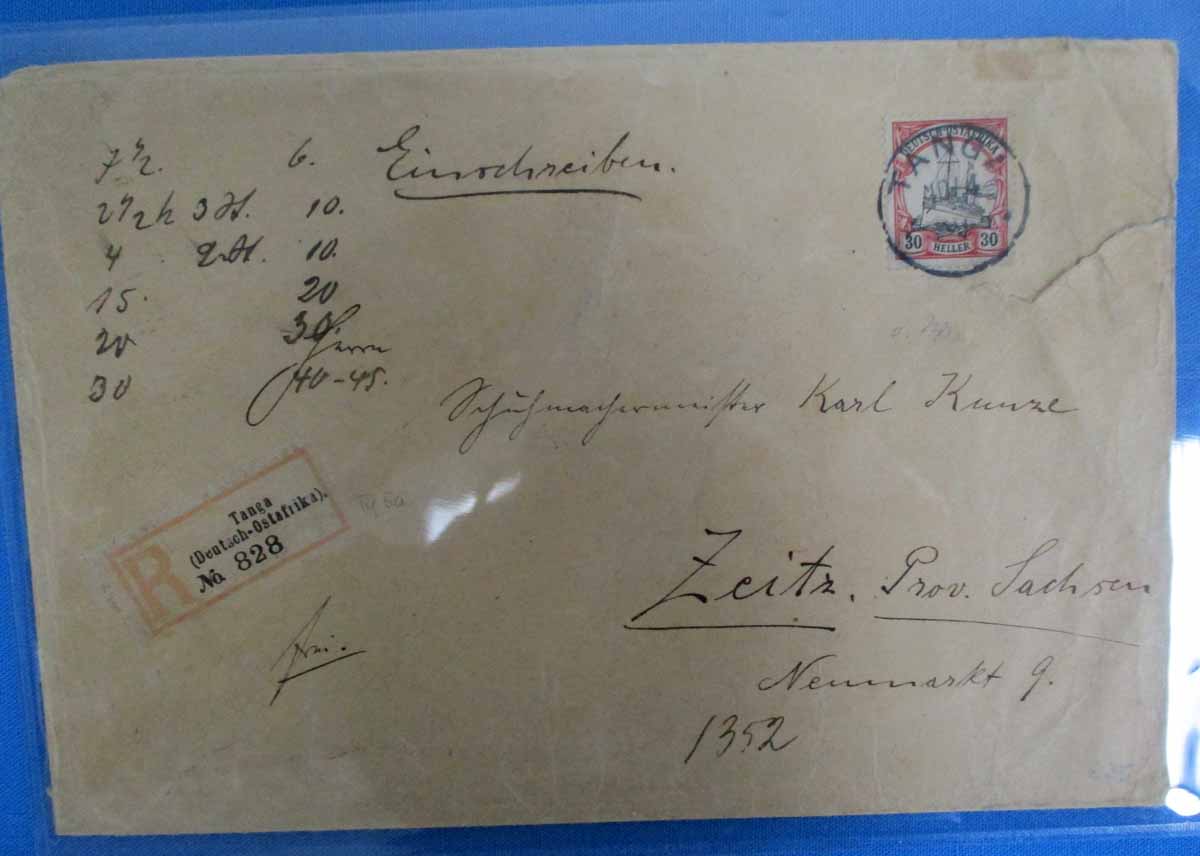 Einschreiben.
DEUTSCH-OSTAFRIKA
TANGA
30 HELLER 30
7 ½. 6.
2 ½ h 3 10.
4 10.
15. 20
20 30.
30 40-45.
Herrn
Schuhmachermeister Karl Kunze
Tanga
(Deutsch-Ostafrika).
R No. 828
Zeitz. Prov. Sachsen
frei.
Neumarkt 9.
1352